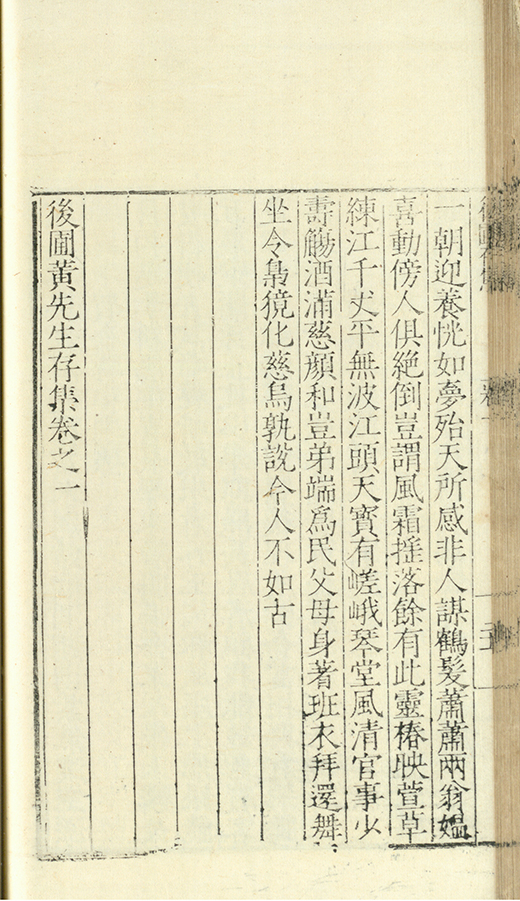 一朝迎養恍如夢殆天所感非人謀鶴髮蕭蕭兩翁媼
喜動傍人俱絶倒豈謂風霜揺落餘有此靈椿映萱草
練江千丈平無波江頭天寶有嵯峨琴堂風清官事少
壽觴酒滿慈顔和豈弟端爲民父母身著班衣拜還舞
坐令梟獍化慈烏孰說今人不如古
後圃黃先生存集卷之一